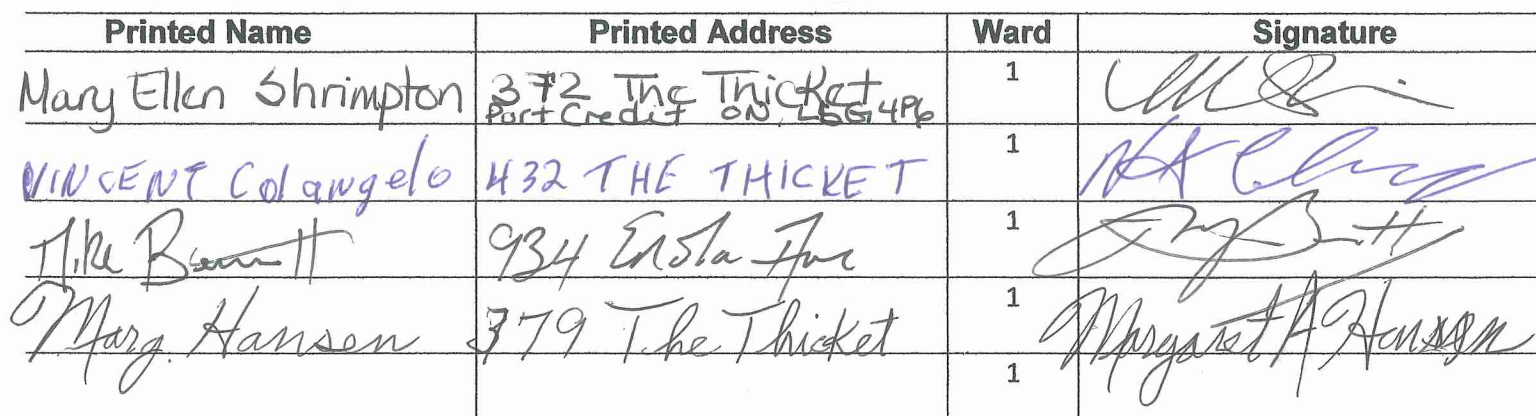 Printed Name Printed Address Ward Signature
Mary Ellen Shrimpton 372 The Thicket 1
Port Credit ON L5G 4P6
VINCENT Colangelo 432 THE THICKET 1
Mike Bennett 934 Enola Ave 1
Marg. Hansen 379 The Thicket 1 Margaret A Hansen
1